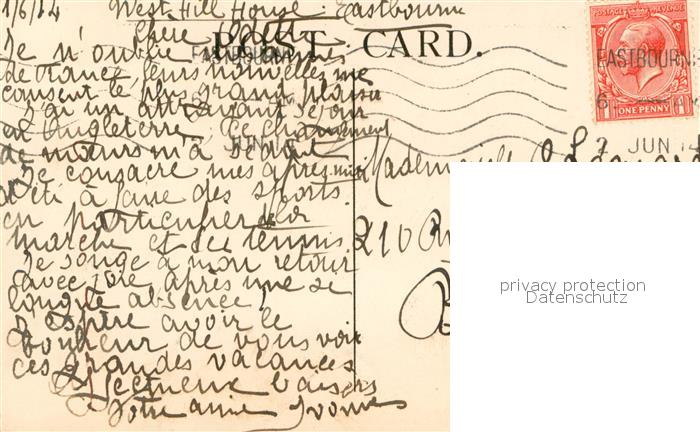 1/6/14 West Hill House: Eastbourne
POST CARD.
POSTAGE REVENUE
ONE PENNY
EASTBOURNE
JUN 14
Chère
Je n'oublie
de France, leurs nouvelles me
causent le plus grand plaisir
J'ai un attrayant séjour
en Angleterre, Ce changement
de mœurs m'a séduit
Je consacre mes après-midi
d'été à faire des sports
en particulier
marche et le tennis.
Je songe à mon retour
avec joie, après une si
longue absence,
J'espère avoir le
bonheur de vous voir
ces grandes vacances
Affectueux baisers
Votre amie Yvonne
Mademoiselle
210 Ru
privacy protection
Datenschutz